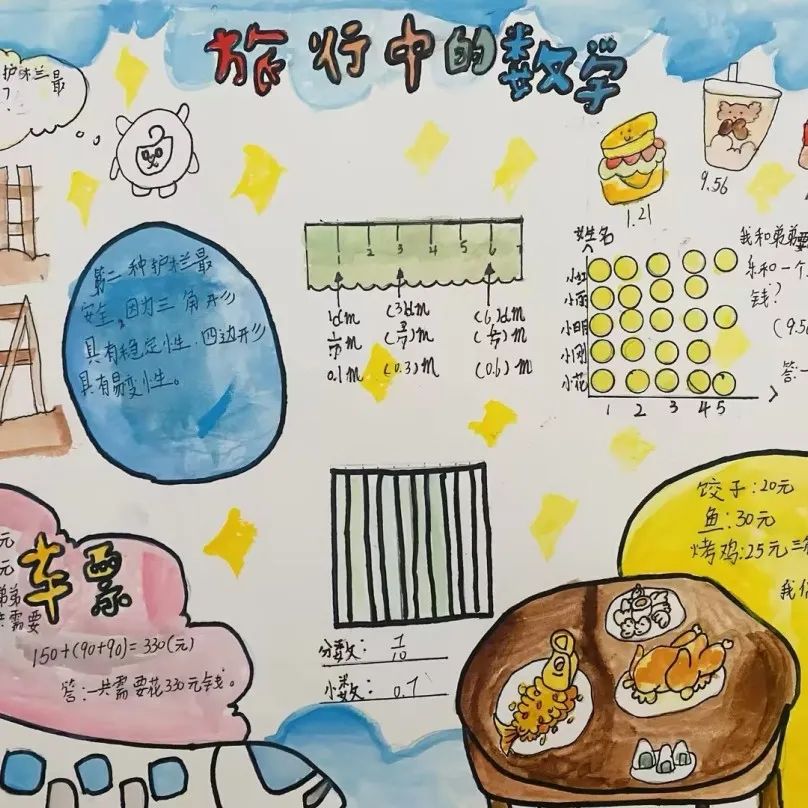 旅行中的数学
护栏最
?
9.56
1.21
第二种护栏最
安全,因为三角形
具有稳定性,四边形
具有易变性。
1 2 3 4 5 6 7
1dm (3)dm (6)dm
0.1m (0.3)m (0.6)m
姓名
小红
小雨
小明
小刚
小花
1 2 3 4 5
我和弟弟要
乐和一个
钱?
(9.56
答:一
饺子:20元
鱼:30元
烤鸡:25元
我们
元
元
弟弟
共需要
车票
150+(90+90)=330(元)
答:一共需要花330元钱。
分数: 1/10
小数: 0.1